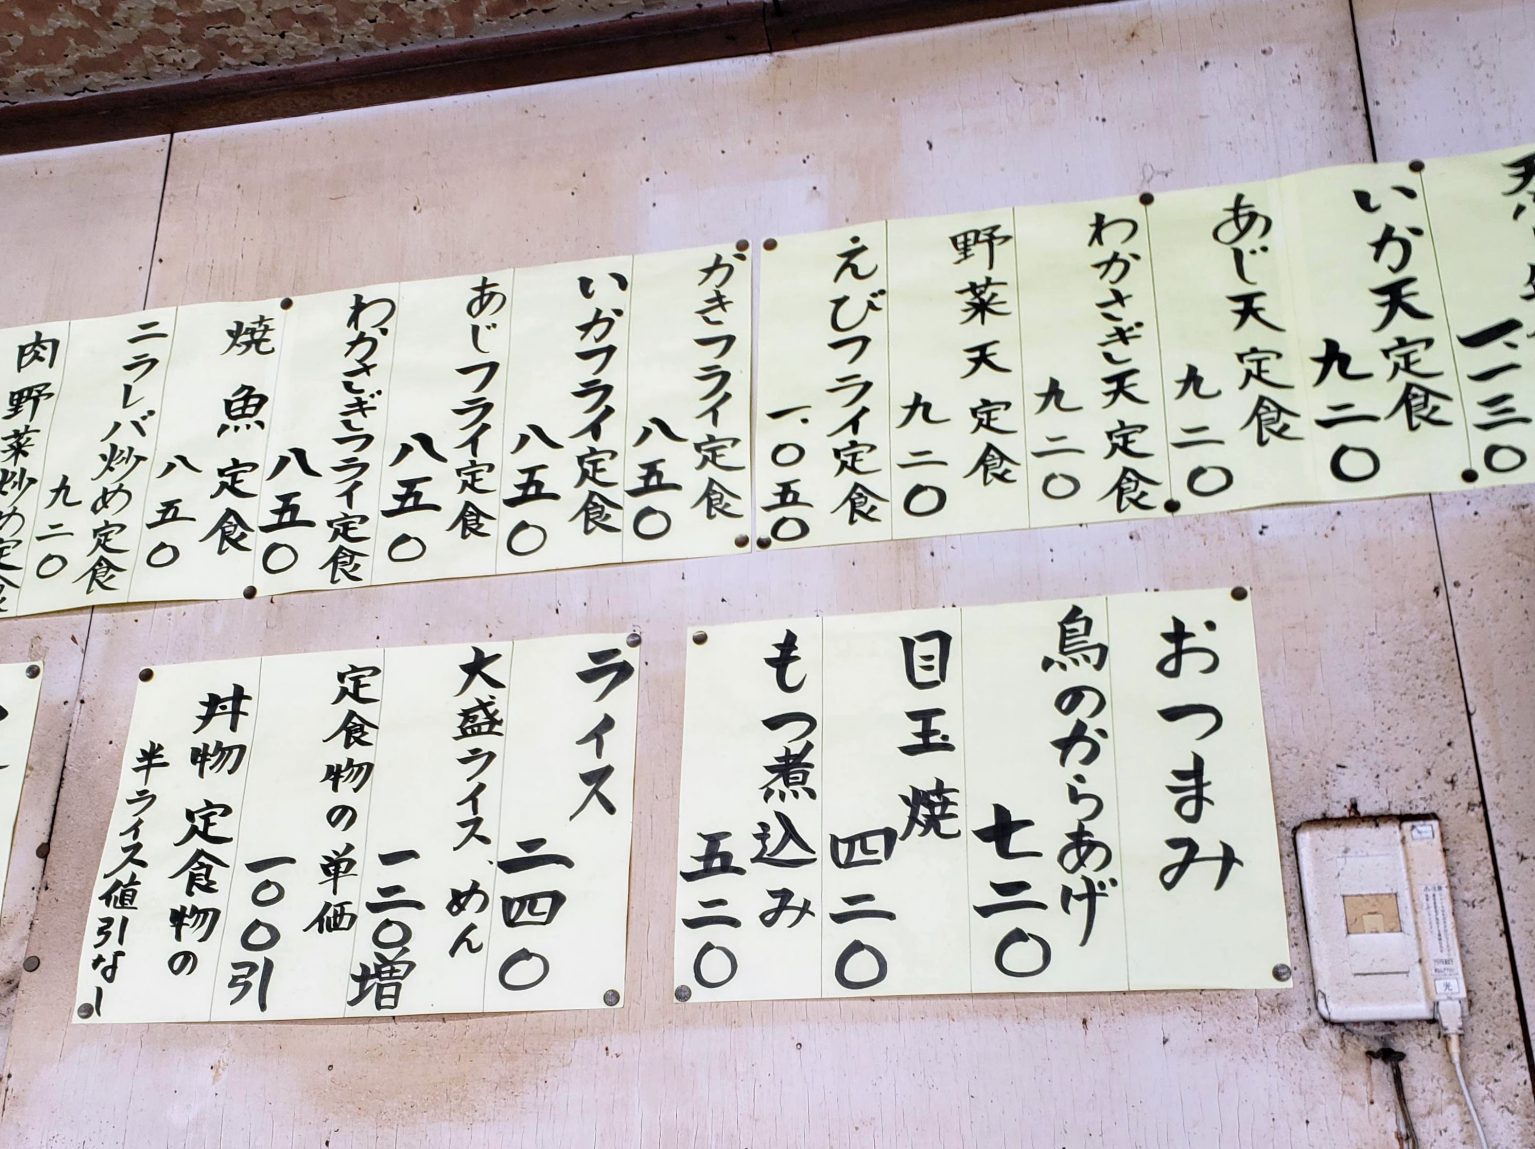 一、一三〇
いか天定食
九二〇
あじ天定食
九二〇
わかさぎ天定食
九二〇
野菜天定食
九二〇
えびフライ定食
一、〇五〇
かきフライ定食
八五〇
いかフライ定食
八五〇
あじフライ定食
八五〇
わかさぎフライ定食
八五〇
焼魚定食
八五〇
ニラレバ炒め定食
九二〇
肉野菜炒め定食
おつまみ
鳥のからあげ
七二〇
目玉焼
四二〇
もつ煮込み
五二〇
ライス
二四〇
大盛ライス、めん
一二〇増
定食物の単価
一〇〇引
丼物定食物の
半ライス値引なし